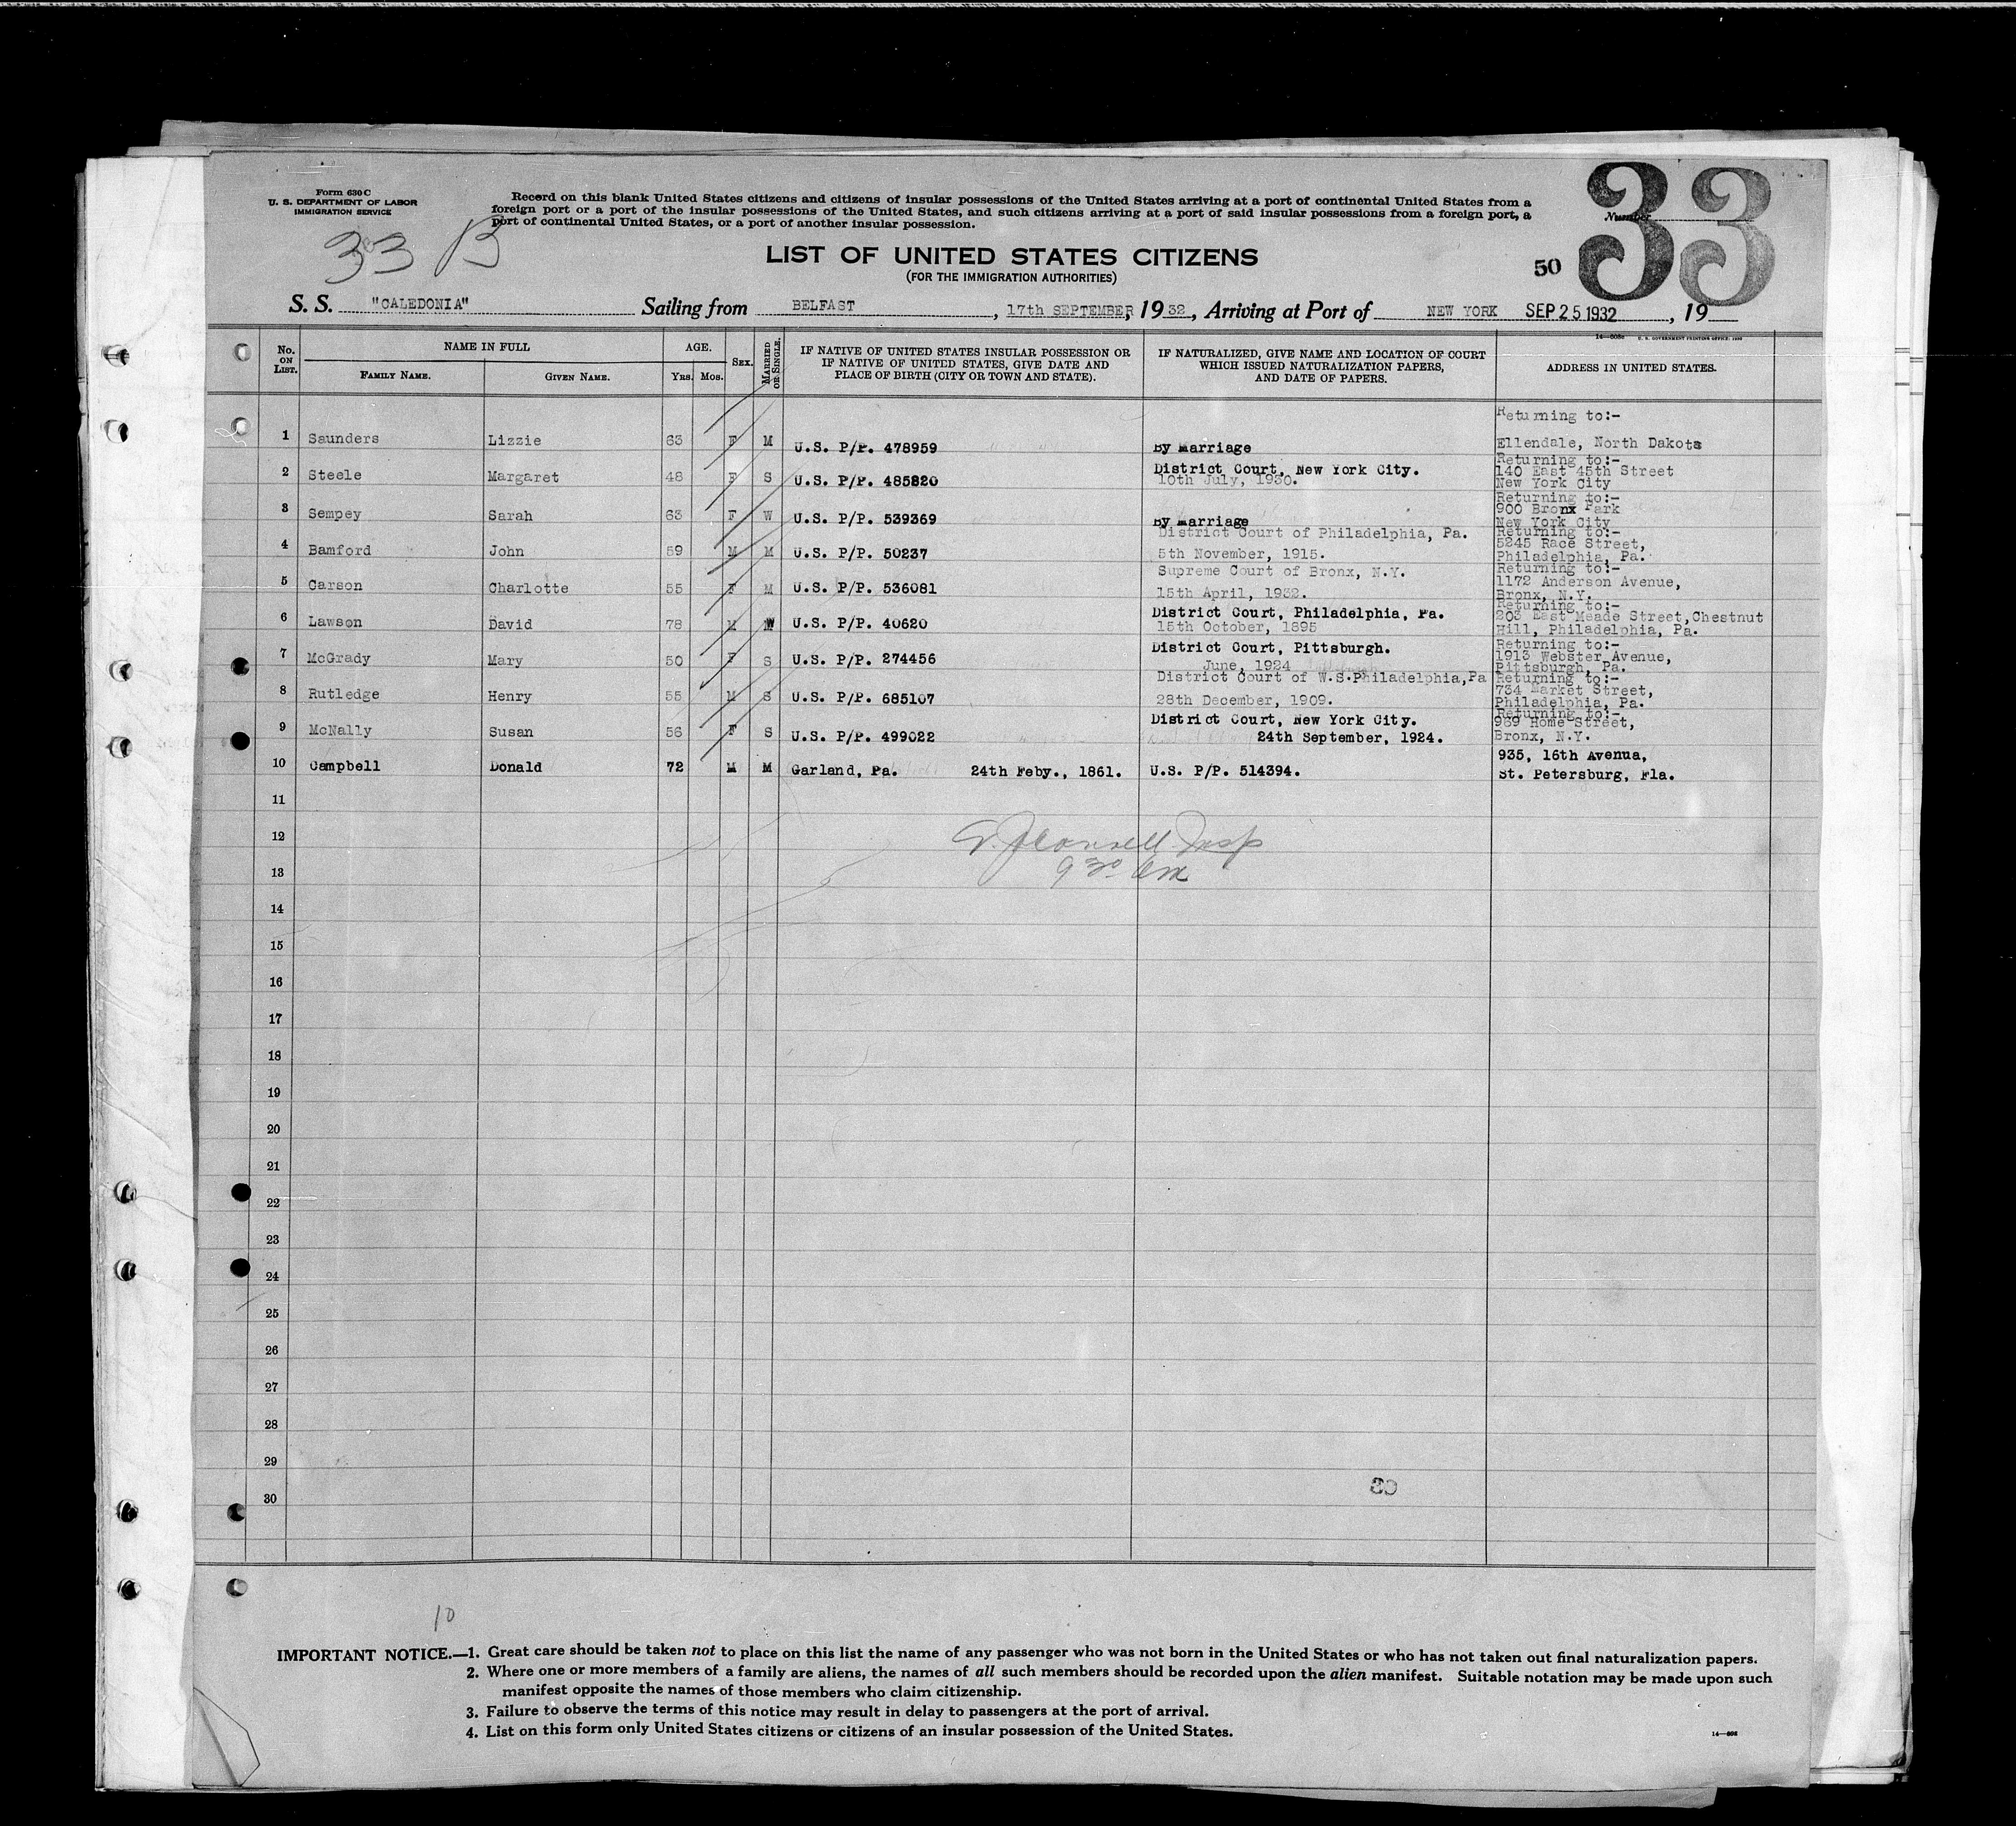 Form 630 C
U. S. DEPARTMENT OF LABOR
IMMIGRATION SERVICE
33 B
Record on this blank United States citizens and citizens of insular possessions of the United States arriving at a port of continental United States from a
foreign port or a port of the insular possessions of the United States, and such citizens arriving at a port of said insular possessions from a foreign port, a
port of continental United States, or a port of another insular possession.
Number
33
LIST OF UNITED STATES CITIZENS
(FOR THE IMMIGRATION AUTHORITIES)
50
S. S. "CALEDONIA" Sailing from BELFAST, 17th SEPTEMBER, 1932, Arriving at Port of NEW YORK SEP 25 1932, 19
No. ON LIST. NAME IN FULL AGE. SEX. MARRIED OR SINGLE. IF NATIVE OF UNITED STATES INSULAR POSSESSION OR IF NATIVE OF UNITED STATES, GIVE DATE AND PLACE OF BIRTH (CITY OR TOWN AND STATE). IF NATURALIZED, GIVE NAME AND LOCATION OF COURT WHICH ISSUED NATURALIZATION PAPERS, AND DATE OF PAPERS. ADDRESS IN UNITED STATES.
FAMILY NAME. GIVEN NAME. YRS. MOS.
Returning to:-
1 Saunders Lizzie 63 F M U.S. P/P. 478959 By Marriage Ellendale, North Dakota
2 Steele Margaret 48 F S U.S. P/P. 485820 District Court, New York City. 10th July, 1930. Returning to:- 140 East 45th Street New York City
3 Sempey Sarah 63 F W U.S. P/P. 539369 By Marriage Returning to:- 900 Bronx Park New York City
4 Bamford John 59 M M U.S. P/P. 50237 District Court of Philadelphia, Pa. 5th November, 1915. Returning to:- 5245 Race Street, Philadelphia, Pa.
5 Carson Charlotte 55 F M U.S. P/P. 536081 Supreme Court of Bronx, N.Y. 15th April, 1932. Returning to:- 1172 Anderson Avenue, Bronx, N.Y.
6 Lawson David 78 M W U.S. P/P. 40620 District Court, Philadelphia, Pa. 15th October, 1895 Returning to:- 203 East Meade Street,Chestnut Hill, Philadelphia, Pa.
7 McGrady Mary 50 F S U.S. P/P. 274456 District Court, Pittsburgh. June, 1924 Returning to:- 1913 Webster Avenue, Pittsburgh, Pa.
8 Rutledge Henry 55 M S U.S. P/P. 685107 District Court of W.S.Philadelphia,Pa 28th December, 1909. Returning to:- 734 Market Street, Philadelphia, Pa.
9 McNally Susan 56 F S U.S. P/P. 499022 District Court, New York City. 24th September, 1924. Returning to:- 989 Home Street, Bronx, N.Y.
10 Campbell Donald 72 M M Garland, Pa. 24th Feby., 1861. U.S. P/P. 514394. 935, 16th Avenua, St. Petersburg, Fla.
11
12
Insp
13
9 30 Am
14
15
16
17
18
19
20
21
22
23
24
25
26
27
28
29
30
10
IMPORTANT NOTICE.—1. Great care should be taken not to place on this list the name of any passenger who was not born in the United States or who has not taken out final naturalization papers.
2. Where one or more members of a family are aliens, the names of all such members should be recorded upon the alien manifest. Suitable notation may be made upon such
manifest opposite the names of those members who claim citizenship.
3. Failure to observe the terms of this notice may result in delay to passengers at the port of arrival.
4. List on this form only United States citizens or citizens of an insular possession of the United States.